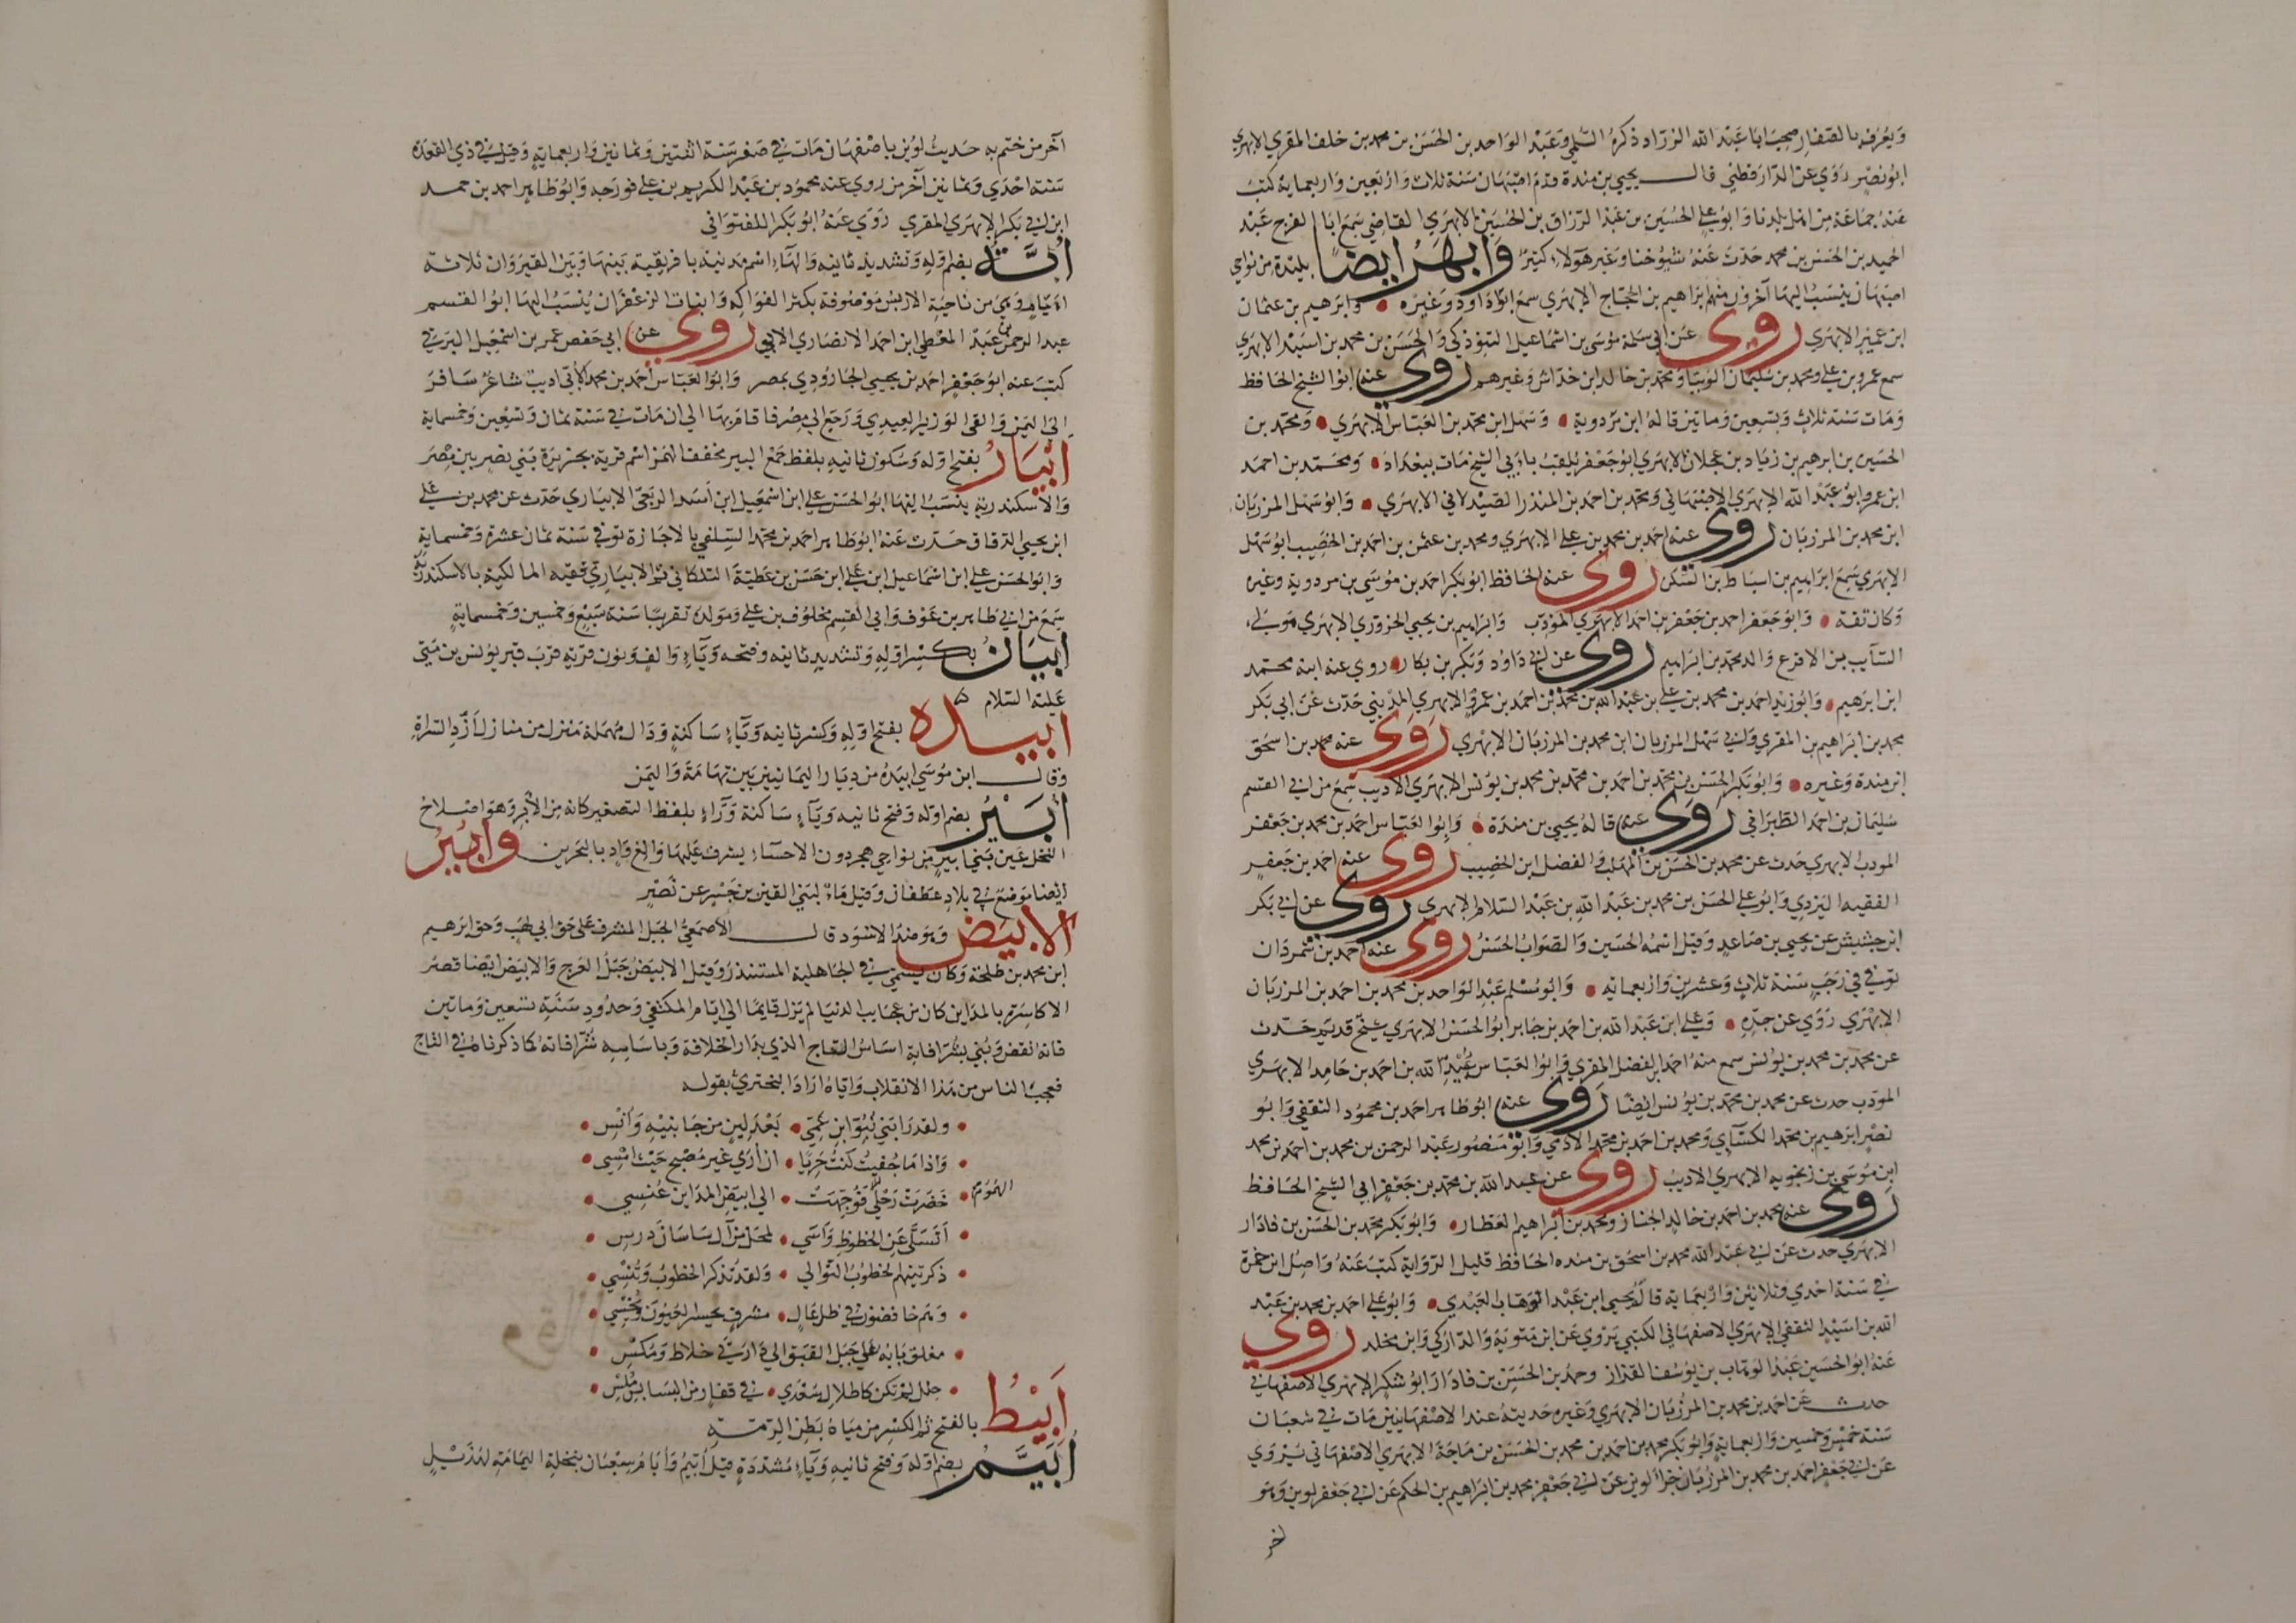 ويعرف بالصفار صحب ابا عبد الله الزراد ذكره السلمي وعبد الواحد بن الحسن بن محمد بن خلف المقري الابهري
ابو نصر روى عن الدارقطني قال يحيى بن مندة قدم اصبهان سنة ثلاث واربعين واربعماية كتب
عنه جماعة من اهل بلدنا وابو علي الحسين بن عبد الرزاق بن الحسين الابهري القاضي سمع ابا الفرج عبد
الحميد بن الحسن بن محمد حدث عنه شيوخنا وغير هولاء كثير وابهر ايضا بليدة من نواحي
اصبهان ينسب اليها آخرون منهم ابراهيم بن الحجاج الابهري سمع ابا داود وغيره وابرهيم بن عثمان
ابن عمير الابهري روى عن ابي سلمة موسى بن اسماعيل التبوذكي والحسن بن محمد بن اسيد الابهري
سمع عمرو بن علي ومحمد بن سليمان لوينا ومحمد بن خالد ابن خداش وغيرهم روى عنه ابو الشيخ الحافظ
ومات سنة ثلاث وتسعين وماتين قاله ابن مردوية وسهل ابن محمد بن العباس الابهري ومحمد بن
الحسين بن ابرهيم بن زياد بن عجلان الابهري ابو جعفر يلقب بابي الشيخ مات ببغداد ومحمد بن احمد
ابن عمرو ابو عبد الله الابهري الاصبهاني ومحمد بن احمد بن المنذر الصيدلاني الابهري وابو سهل المرزبان
ابن محمد بن المرزبان روى عنه احمد بن محمد بن علي الابهري ومحمد بن عثمن بن احمد بن الخصيب ابو سهل
الابهري سمع ابراهيم بن اسباط بن السكن روى عنه الحافظ ابو بكر احمد بن موسى بن مردوية وغيره
وكان ثقة وابو جعفر احمد بن جعفر بن احمد الابهري المؤدب وابراهيم بن يحيى الحزوري الابهري مولى
السايب بن الاقرع والد محمد بن ابراهيم روى عن ابي داود وبكر بن بكار روى عنه ابنه محمد
ابن ابرهيم وابو زيد احمد بن محمد بن علي بن عبد الله بن محمد بن احمد بن عمرو الابهري المديني حدث عن ابي بكر
محمد بن ابراهيم بن المقري وابي سهل المرزبان ابن محمد بن المرزبان الابهري روى عنه محمد بن اسحق
ابن مندة وغيره وابو بكر الحسن بن محمد بن احمد بن محمد بن محمد بن يونس الابهري الاديب سمع من ابي القسم
سليمان بن احمد الطبراني روى عنه قاله يحيى بن مندة وابو العباس احمد بن محمد بن جعفر
المودب الابهري حدث عن محمد بن الحسن بن المهلب والفضل ابن الخصيب روى عنه احمد بن جعفر
الفقيه اليزدي وابو علي الحسن بن محمد بن عبد الله بن عبد السلام الابهري روى عن ابي بكر
ابن جشنيش عن يحيى بن صاعد وقيل اسمه الحسين والصواب الحسن روى عنه احمد بن شمردان
توفي في رجب سنة ثلاث وعشرين واربعماية وابو مسلم عبد الواحد بن محمد بن احمد بن المرزبان
الابهري روى عن جده وعلي ابن عبد الله بن احمد بن جابر ابو الحسن الابهري شيخ قديم حدث
عن محمد بن محمد بن يونس سمع منه احمد ابن الفضل المقري وابو العباس عبيد الله بن احمد بن حامد الابهري
المودب حدث عن محمد بن محمد بن يونس ايضا روى عنه ابو طاهر احمد بن محمود الثقفي وابو
نصر ابرهيم بن محمد الكسآي ومحمد بن احمد بن محمد الادمي وابو منصور عبد الرحمن بن محمد بن احمد بن محمد
ابن موسى بن زنجويه الابهري الاديب روى عن عبد الله بن محمد بن جعفر ابي الشيخ الحافظ
روى عنه محمد بن احمد بن خالد الخباز ومحمد بن ابراهيم العطار وابو بكر محمد بن الحسن بن فادار
الابهري حدث عن ابي عبد الله محمد بن اسحق بن مندة الحافظ قليل الرواية كتب عنه واصل ابن حمزة
في سنة احدى وثلاثين واربعماية قاله يحيى ابن عبد الوهاب العبدي وابو علي احمد بن محمد بن عبد
الله بن اسيد الثقفي الابهري الاصفهاني الكتبي يروي عن ابن متوية والداركي وابن مخلد روى
عنه ابو الحسين عبد الوهاب بن يوسف القزاز وحمد بن الحسن بن فادار ابو شكر الابهري الاصفهاني
حدث عن احمد بن محمد بن المرزبان الابهري وغيره حديثه عند الاصفهانيين مات في شعبان
سنة خمس وخمسين واربعماية وابو بكر محمد بن احمد بن محمد بن الحسن بن ماجة الابهري الاصفهاني يروي
عن ابي جعفر احمد بن محمد بن المرزبان جزأ لوين عن ابي جعفر محمد بن ابراهيم بن الحكم عن ابي جعفر لوين وهو
اخر
آخر من ختم به حديث لوين باصفهان مات في صفر سنة اثنتين وثمانين واربعماية وقيل في ذي القعدة
سنة احدى وثمانين آخر من روى عنه محمود بن عبد الكريم بن علي فورجه وابو طاهر احمد بن حمد
ابن ابي بكر الابهري المقري روى عنه ابو بكر اللفتواني
ابّة بضم اوله وتشديد ثانيه والهاء اسم مدينة بافريقية بينها وبين القيروان ثلاثة
ايام وهي من ناحية الاربس موصوفة بكثر الفواكه وانبات الزعفران ينسب اليها ابو القسم
عبد الرحمن بن عبد المعطي ابن احمد الانصاري الابي روى عن ابي حفص عمر بن اسمعيل البرقي
كتب عنه ابو جعفر احمد بن يحيى الجارودي بمصر وابو العباس احمد بن محمد الابي اديب شاعر سافر
الى اليمن والقى الوزير العيدي ورجع الى مصر فاقام بها الى ان مات في سنة ثمان وتسعين وخمسماية
ابيار بفتح اوله وسكون ثانيه بلفظ جمع البير مخفف الهمز اسم قرية بجزيرة بني نصر بين مصر
والاسكندرية ينسب اليها ابو الحسن علي ابن اسمعيل ابن اسد الربعي الابياري حدث عن محمد بن علي
ابن يحيى الدقاق حدث عنه ابو طاهر احمد بن محمد السلفي بالاجازة توفي سنة ثمان عشرة وخمسماية
وابو الحسن علي ابن اسماعيل ابن علي ابن حسن بن عطية التلكاني ثم الابياري فقيه المالكية بالاسكندرية
سمع من ابي طاهر بن عوف وابي القسم مخلوف بن علي ومولده تقريبا سنة سبع وخمسين وخمسماية
ابيان بكسر اوله وتشديد ثانيه وفتحه وياء والف ونون قرية قرب قبر يونس بن متى
عليه السلام
ابيده بفتح اوله وكسر ثانيه وياء ساكنة ودال مهملة منزل من منازل أزد السراة
وقال ابن موسى ابيدة من ديار اليمانيين بين تهامة واليمن
أبير بضم اوله وفتح ثانيه وياء ساكنة وراء بلفظ التصغير كانه من الأبر وهو اصلاح
النخل عين بني ابير من نواحي هجر دون الاحساء يشرف عليها والغ واد بالبحرين وابير
ايضا موضع في بلاد غطفان وقيل ماء لبني القين بن جسر عن نصر
الابيض وهو ضد الاسود قال الاصمعي الجبل المشرف على حق ابي لهب وحق ابرهيم
ابن محمد بن طلحة وكان يسمى في الجاهلية المستنذر وقيل الابيض جبل العرج والابيض ايضا قصر
الاكاسرة بالمداين كان من عجايب الدنيا لم يزل قايما الى ايام المكتفي وحدود سنة تسعين وماتين
فانه نقض وبني بشرافاته اساس التاج الذي بدار الخلافة وباساسه شرافاته كما ذكرنا في التاج
فعجب الناس من هذا الانقلاب واياه اراد البحتري بقوله
ولقد رابني نبو ابن عمي بعد لين من جانبيه وانس
واذا ما جفيت كنت حريا ان ارى غير مصبح حيث امسي
حضرت رحلي الهموم فوجهت الى ابيض المداين عنسي
اتسلى عن الحظوظ وآسى لمحل من آل ساسان درس
ذكرتنيهم الخطوب التوالي ولقد تذكر الخطوب وتنسي
وهم خافضون في ظل عال مشرف يحسر العيون ويخسي
مغلق بابه على جبل القبق الى دارتي خلاط ومكس
حلل لم تكن كاطلال سعدى في قفار من البسابس ملس
ابيط بالفتح ثم الكسر من مياه بطن الرمة
أبيّم بضم اوله وفتح ثانيه وياء مشددة قيل أبيم وأبام شعبان بنخلة اليمامة لهذيل